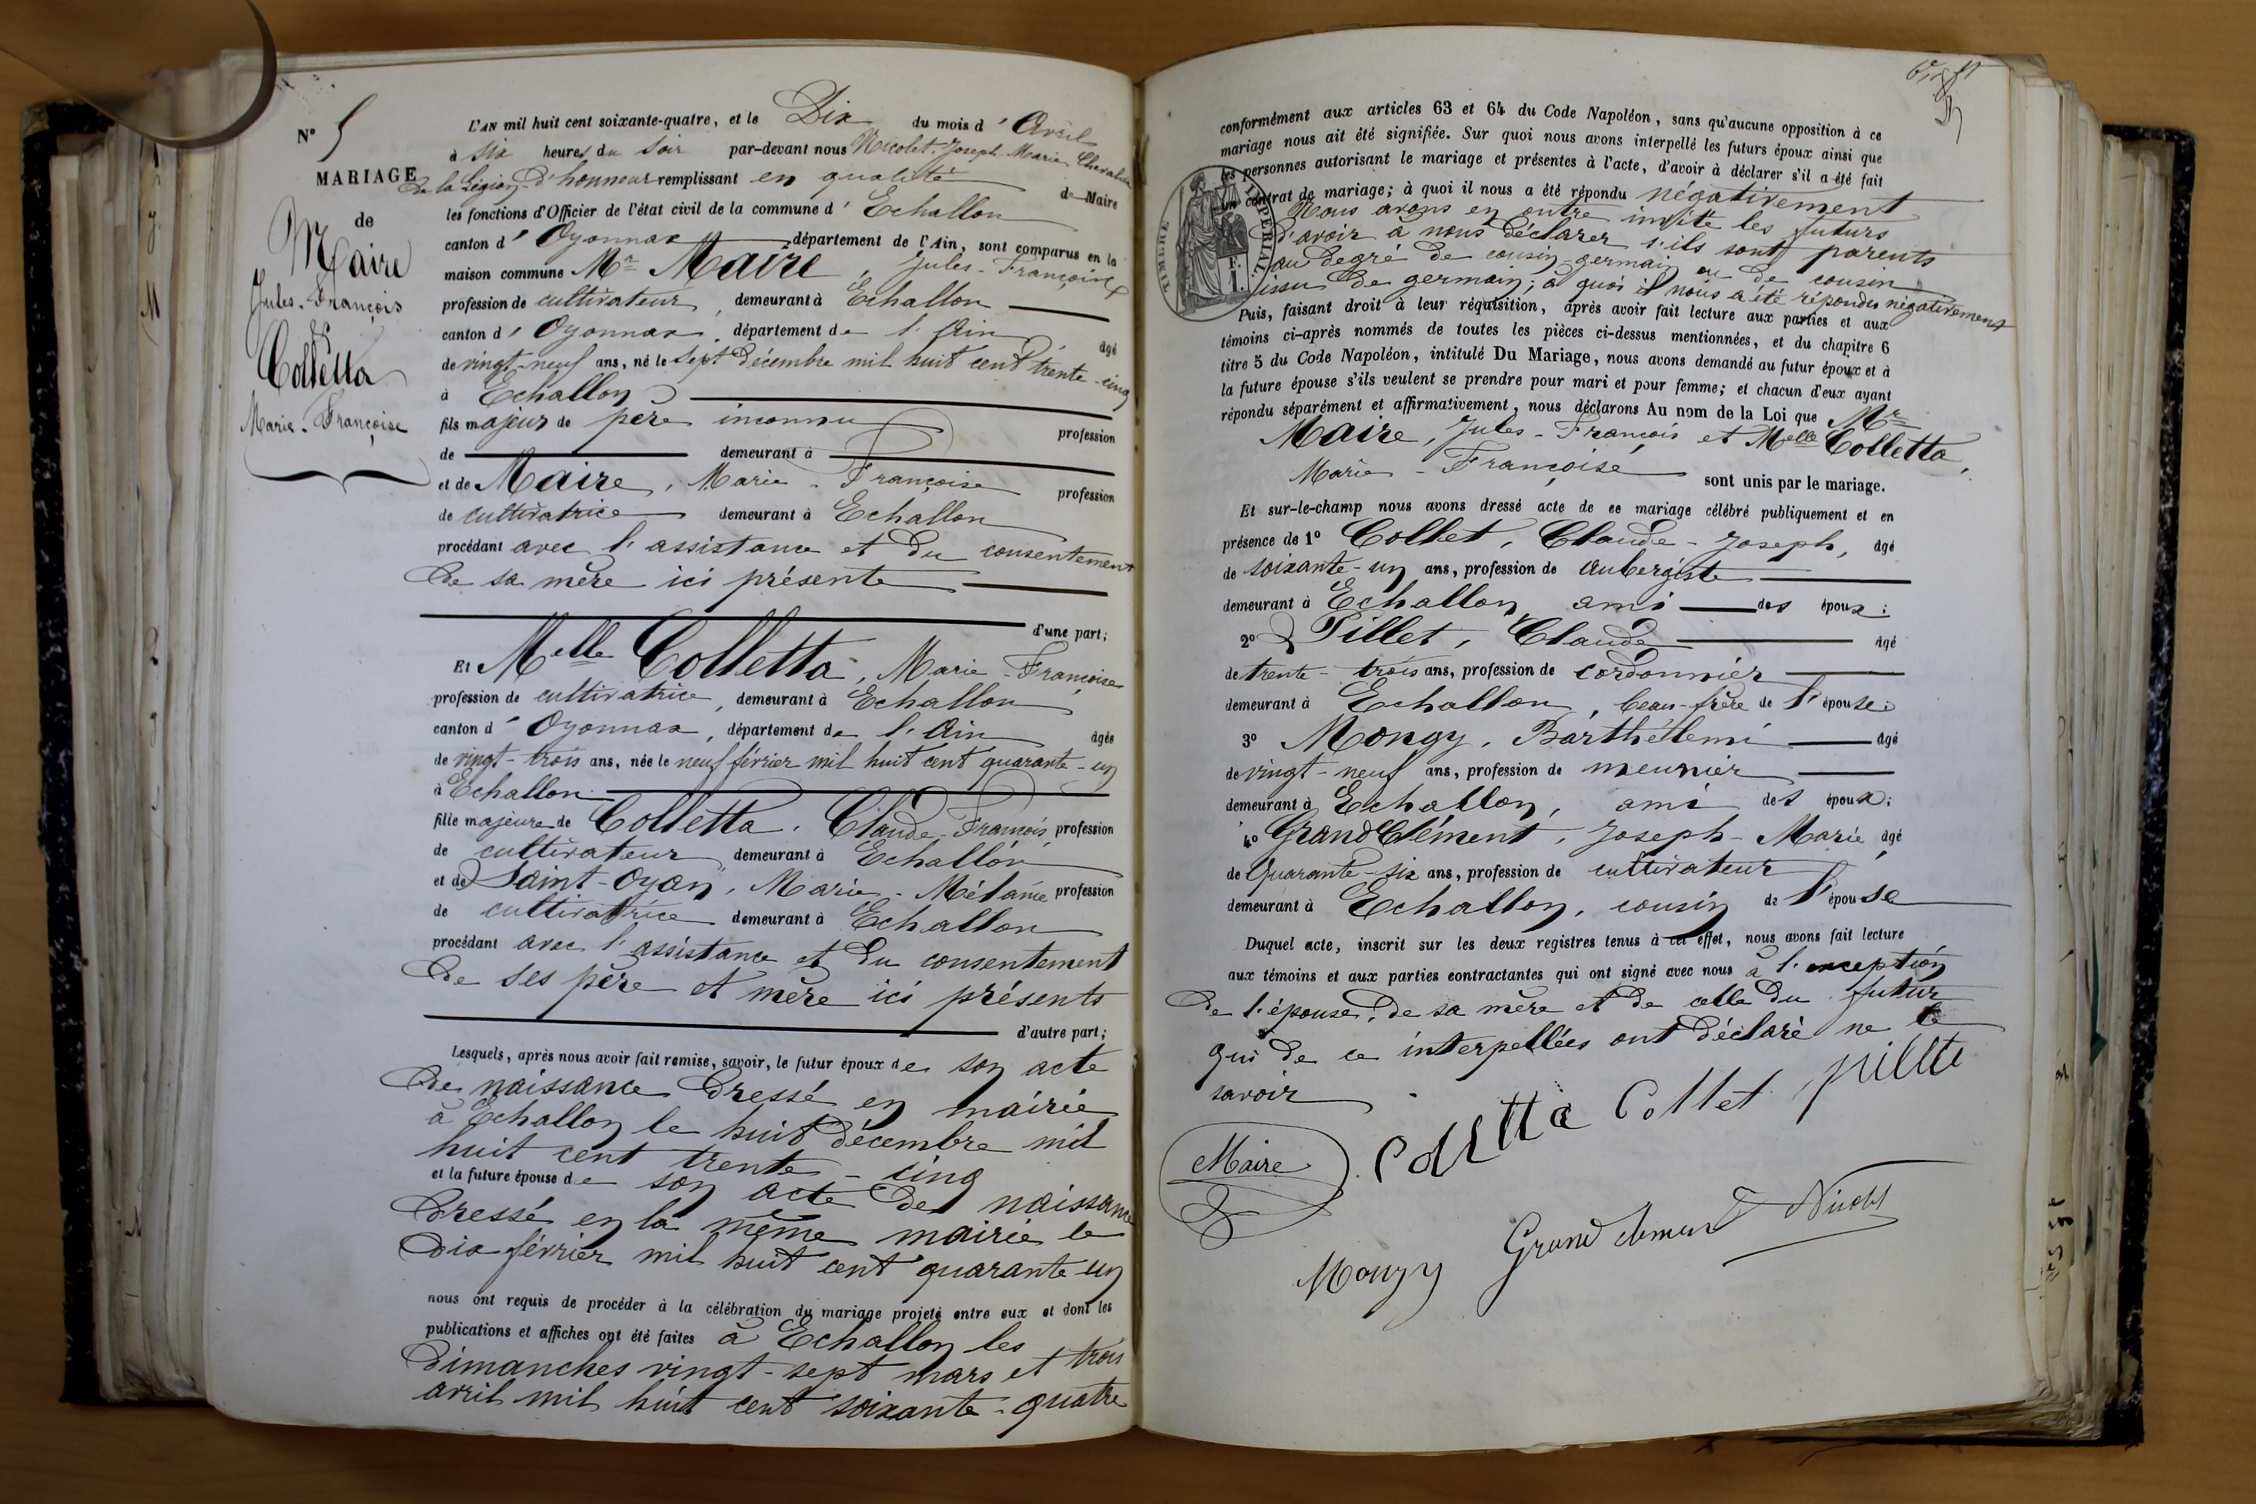 N° 5
MARIAGE
de
Maire
Jules-François
&
Colletta
Marie-Françoise
L'AN mil huit cent soixante-quatre, et le Dix du mois d'Avril
à six heures du soir par-devant nous Nicolet, Joseph-Marie, Chevalier
de la Légion d'honneur remplissant en qualité de Maire
les fonctions d'Officier de l'état civil de la commune d'Echallon
canton d'Oyonnax département de l'Ain, sont comparus en la
maison commune Mr Maire, Jules-François
profession de cultivateur, demeurant à Echallon
canton d'Oyonnax, département de l'Ain âgé
de vingt-neuf ans, né le sept décembre mil huit cent trente-cinq
à Echallon
fils majeur de père inconnu profession
de demeurant à
et de Maire, Marie-Françoise profession
de cultivatrice demeurant à Echallon
procédant avec l'assistance et du consentement
de sa mère ici présente
d'une part;
Et Melle Colletta, Marie-Françoise
profession de cultivatrice, demeurant à Echallon
canton d'Oyonnax, département de l'Ain âgée
de vingt-trois ans, née le neuf février mil huit cent quarante-un
à Echallon
fille majeure de Colletta, Claude-François, profession
de cultivateur demeurant à Echallon
et de Saint-Oyan, Marie-Mélanie profession
de cultivatrice demeurant à Echallon
procédant avec l'assistance et du consentement
de ses père et mère ici présents
d'autre part;
Lesquels, après nous avoir fait remise, savoir, le futur époux de son acte
de naissance dressé en mairie
à Echallon le huit décembre mil
huit cent trente-cinq
et la future épouse de son acte de naissance
dressé en la même mairie le
dix février mil huit cent quarante-un
nous ont requis de procéder à la célébration du mariage projeté entre eux et dont les
publications et affiches ont été faites à Echallon les
dimanches vingt-sept mars et trois
avril mil huit cent soixante-quatre
conformément aux articles 63 et 64 du Code Napoléon, sans qu'aucune opposition à ce
mariage nous ait été signifiée. Sur quoi nous avons interpellé les futurs époux ainsi que
les personnes autorisant le mariage et présentes à l'acte, d'avoir à déclarer s'il a été fait
un contrat de mariage; à quoi il nous a été répondu négativement
Nous avons en outre invité les futurs
d'avoir à nous déclarer s'ils sont parents
au degré de cousin-germain ou de cousin
issu de germain; à quoi il nous a été répondu négativement
TIMBRE IMPERIAL.
Puis, faisant droit à leur réquisition, après avoir fait lecture aux parties et aux
témoins ci-après nommés de toutes les pièces ci-dessus mentionnées, et du chapitre 6
titre 5 du Code Napoléon, intitulé Du Mariage, nous avons demandé au futur époux et à
la future épouse s'ils veulent se prendre pour mari et pour femme; et chacun d'eux ayant
répondu séparément et affirmativement, nous déclarons Au nom de la Loi que Mr
Maire, Jules-François et Melle Colletta,
Marie-Françoise sont unis par le mariage.
Et sur-le-champ nous avons dressé acte de ce mariage célébré publiquement et en
présence de 1° Collet, Claude-Joseph, âgé
de soixante-un ans, profession de aubergiste
demeurant à Echallon, ami des époux;
2° Pillet, Claude âgé
de trente-trois ans, profession de cordonnier
demeurant à Echallon, beau-frère de l'épouse;
3° Mongy, Barthélemi âgé
de vingt-neuf ans, profession de meunier
demeurant à Echallon, ami des époux;
4° GrandClément, Joseph-Marie, âgé
de Quarante-six ans, profession de cultivateur
demeurant à Echallon, cousin de l'épouse
Duquel acte, inscrit sur les deux registres tenus à cet effet, nous avons fait lecture
aux témoins et aux parties contractantes qui ont signé avec nous à l'exception
de l'épouse, de sa mère et de celle du futur
qui de ce interpellées ont déclaré ne le
savoir
Maire Colletta Collet pillet
Mongy Grand clement Nicolet